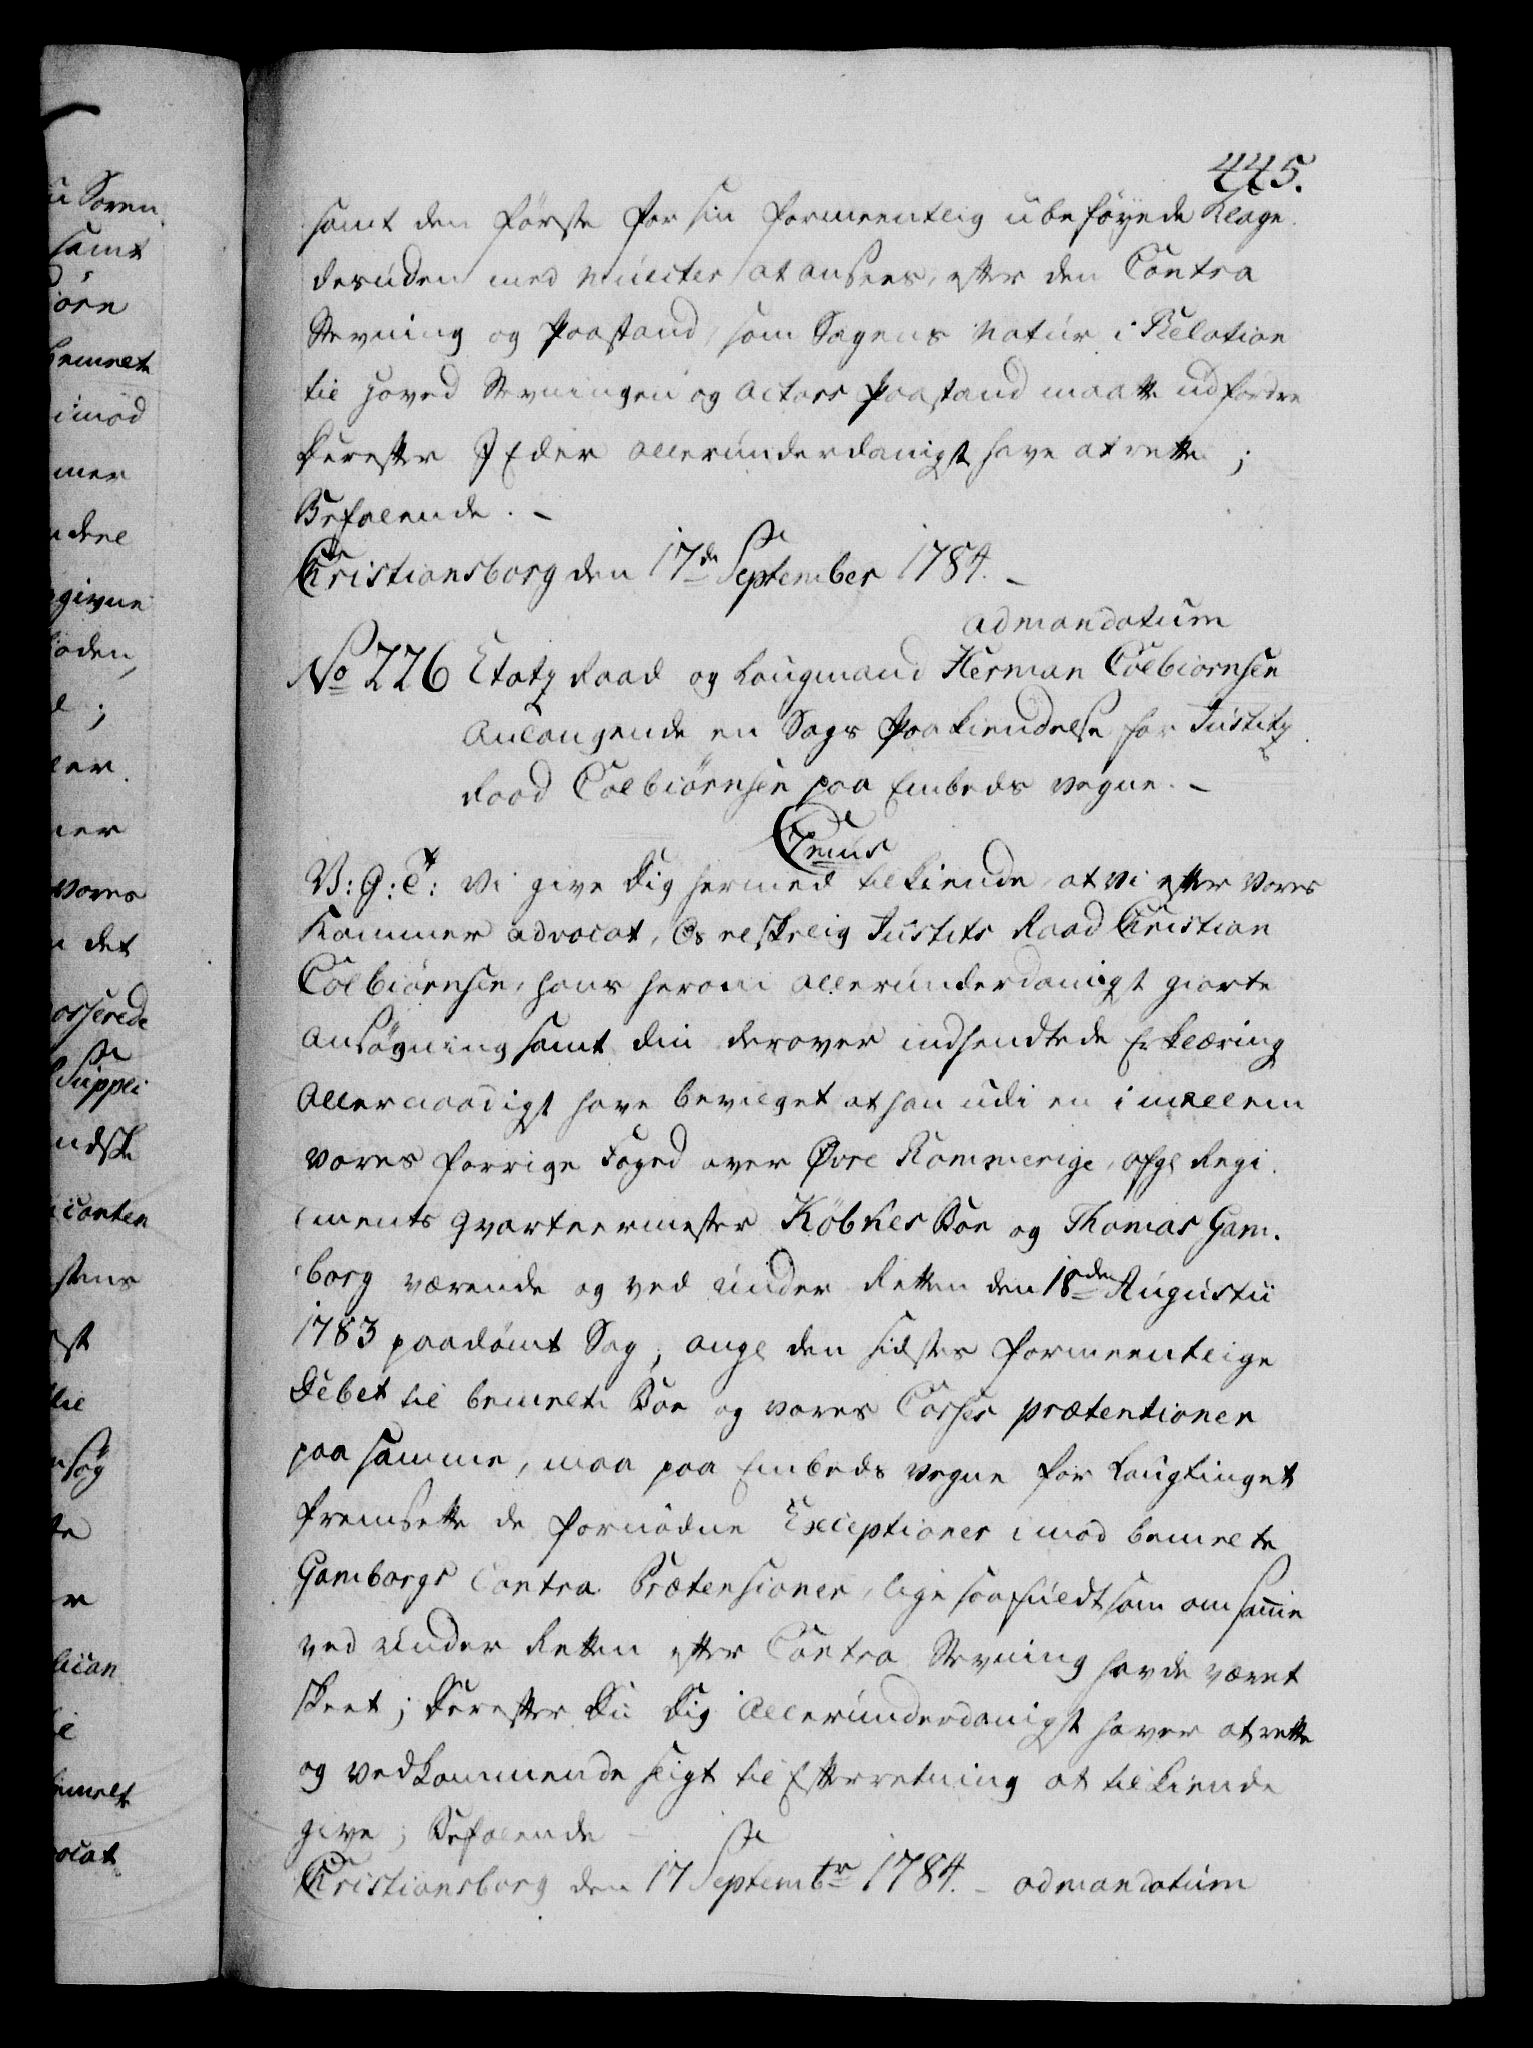 445.
samt den første for sin formeentlig ubeføyede Klage
desuden med Mulcter at ansees, efter den Contra
Stevning og Paastand, som Sagens Natur i Relation
til Hoved Stevningen og Actors Paastand maatte udfordre
Derefter I Eder allerunderdanigst have at rette;
Befalende. -
Christiansborg den 17de September 1784. -
admandatum
No 226 Etatz Raad og Laugmand Herman Colbiørnsen
Anlangende en Sags Paakiendelse for Justitz
Raad Colbiørnsen paa Embeds vegne. -
C7mus
V: G: T: Vi give dig hermed tilkiende, at vi efter vores
Kammer advocat, Os elskelig Justits Raad Christian
Colbiørnsen, hans herom allerunderdanigst giorte
Ansøgning samt din derover indsendte Erklæring
Allernaadigst have bevilget at han udi en imellem
vores forrige Foged over Øvre Rommerige, afge Regi
ments Qvarteermester Köbkes Boe og Thomas Gam-
borg værende og ved Under Retten den 18den Augustii
1783 paadømt Sag, ange den sidstes formeentlige
Debet til bemelte Boe og vores Casses prætentioner
paa samme, maa paa Embeds vegne for Laugtinget
fremsette de fornødne Exceptioner imod bemelte
Gamborgs Contra Prætensioner, lige saafuldt som om samme
ved Under Retten efter Contra Stevning havde været
skeet; Derefter Du dig allerunderdanigst haver at rette
og vedkommende sligt til Efterretning at tilkiende
give; Befalende -
Christiansborg den 17 Septembr 1784. - admandatum